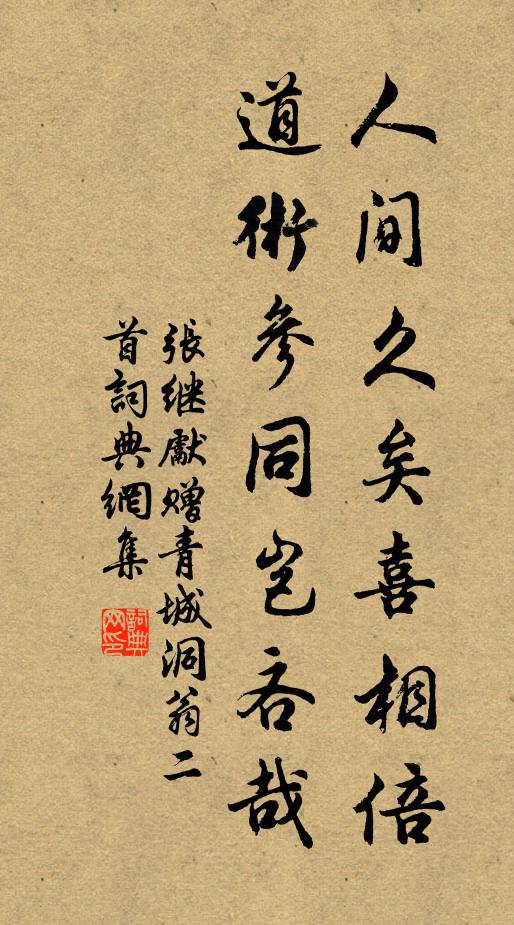 人間久矣喜相倍
道術參同豈吝哉
張继獻赠青城洞翁二
首詞典網集
詞典
网印